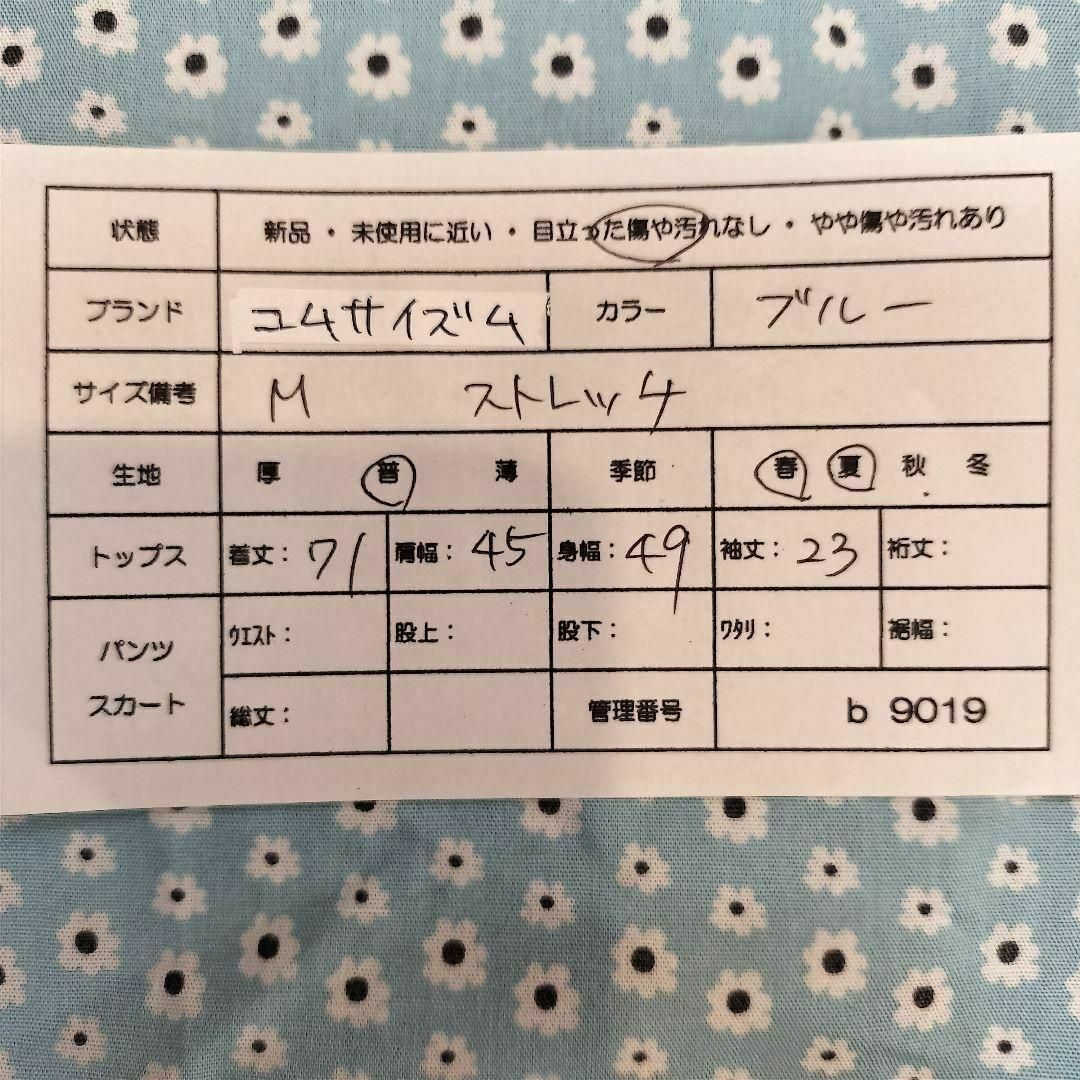 状態 新品・未使用に近い・目立った傷や汚れなし・やや傷や汚れあり
ブランド コムサイズム カラー ブルー
サイズ備考 M ストレッチ
生地 厚 普 薄 季節 春 夏 秋 冬
トップス 着丈：71 肩幅：45 身幅：49 袖丈：23 裄丈：
パンツ スカート ウエスト： 股上： 股下： ワタリ： 裾幅：
総丈： 管理番号 b 9019